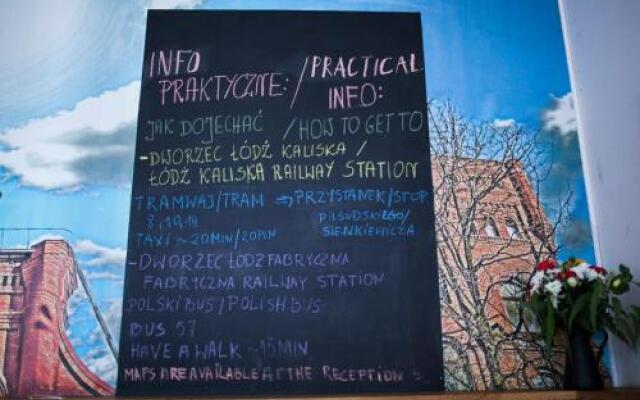 INFO PRAKTYCZNE: / PRACTICAL INFO:
JAK DOJECHAĆ / HOW TO GET TO
- DWORZEC ŁÓDŹ KALISKA /
ŁÓDŹ KALISKA RAILWAY STATION
TRAMWAJ/TRAM → PRZYSTANEK/STOP
8,10,14 PIŁSUDSKIEGO/
SIENKIEWICZA
TAXI ~ 20MIN/20PLN
- DWORZEC ŁÓDŹ FABRYCZNA
FABRYCZNA RAILWAY STATION
POLSKI BUS/POLISH BUS
BUS 57
HAVE A WALK ~15MIN
MAPS ARE AVAILABLE AT THE RECEPTION